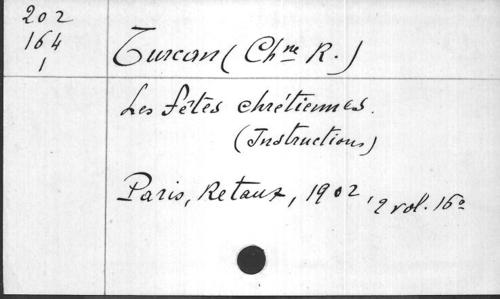 202
164
1
Turcan (Chne R.)
Les fêtes chrétiennes.
(Instructions)
Paris, Retaux, 1902, 2 vol. 16°